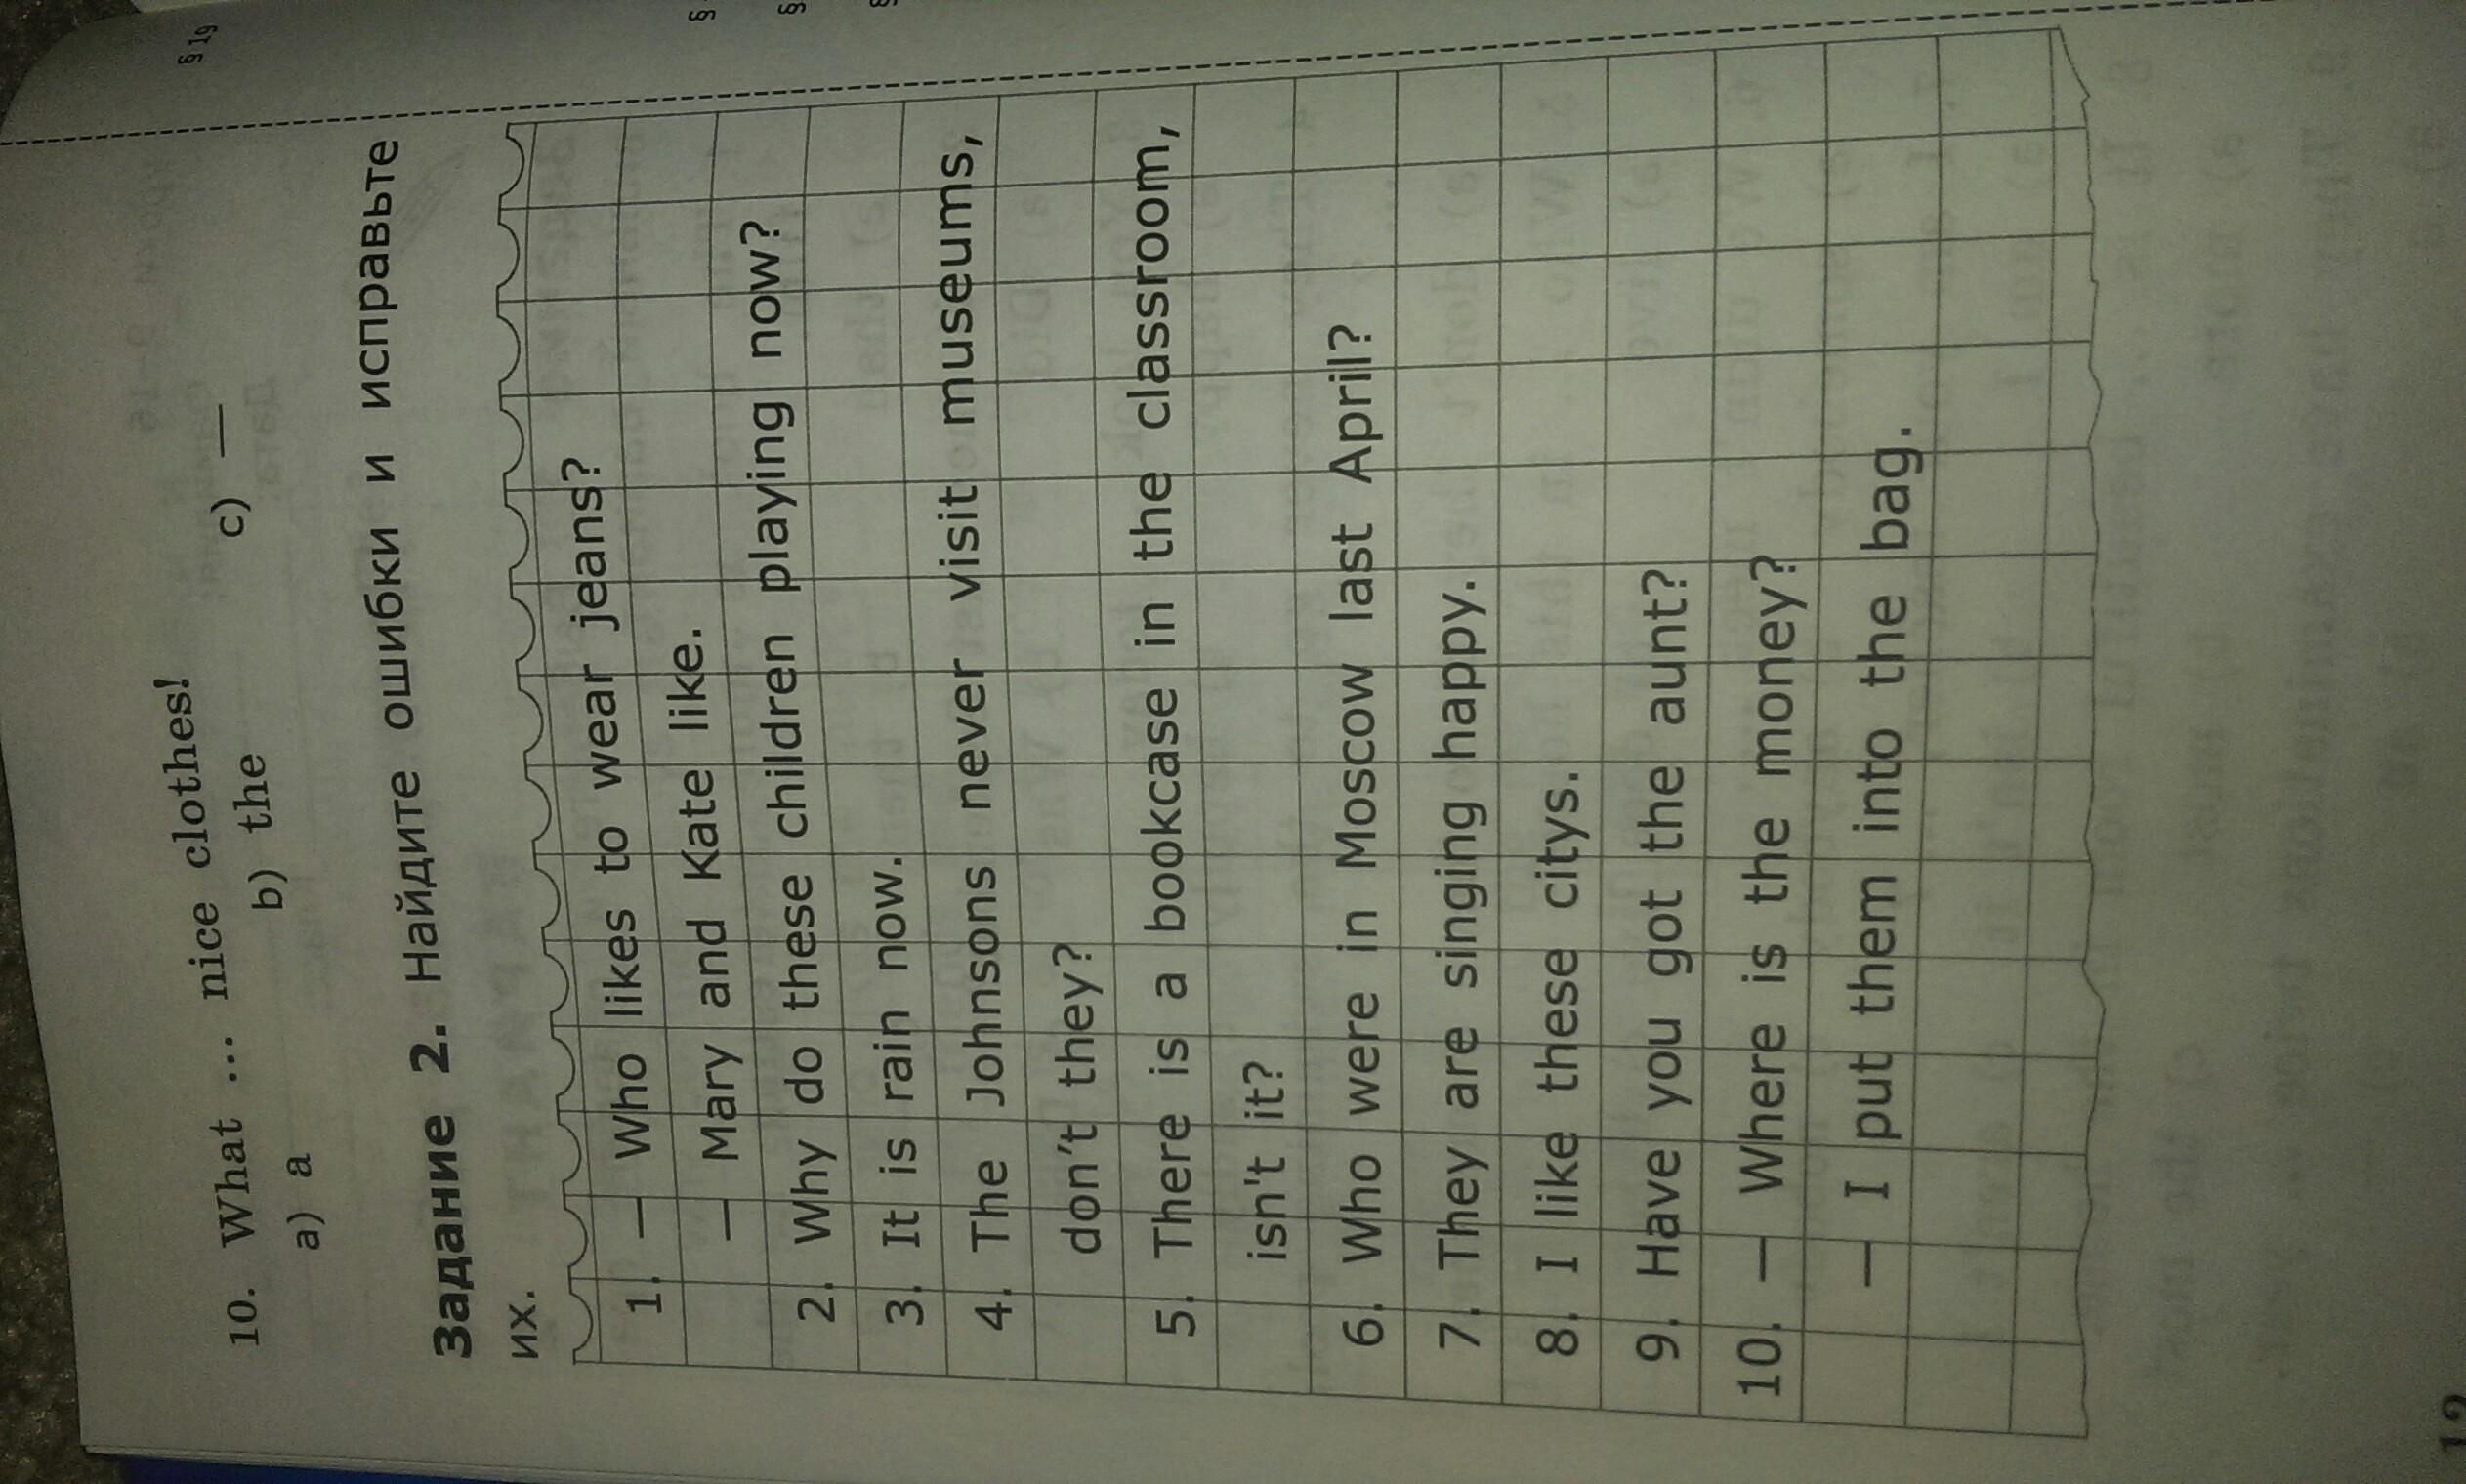 § 19
10. What ... nice clothes!
a) a b) the c) —
Задание 2. Найдите ошибки и исправьте
их.
1. — Who likes to wear jeans?
— Mary and Kate like.
2. Why do these children playing now?
3. It is rain now.
4. The Johnsons never visit museums,
don't they?
5. There is a bookcase in the classroom,
isn't it?
6. Who were in Moscow last April?
7. They are singing happy.
8. I like these citys.
9. Have you got the aunt?
10. — Where is the money?
— I put them into the bag.